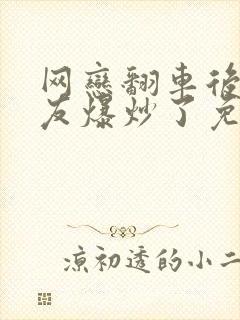 网戀翻車後
友爆炒了免
凉初透的小二